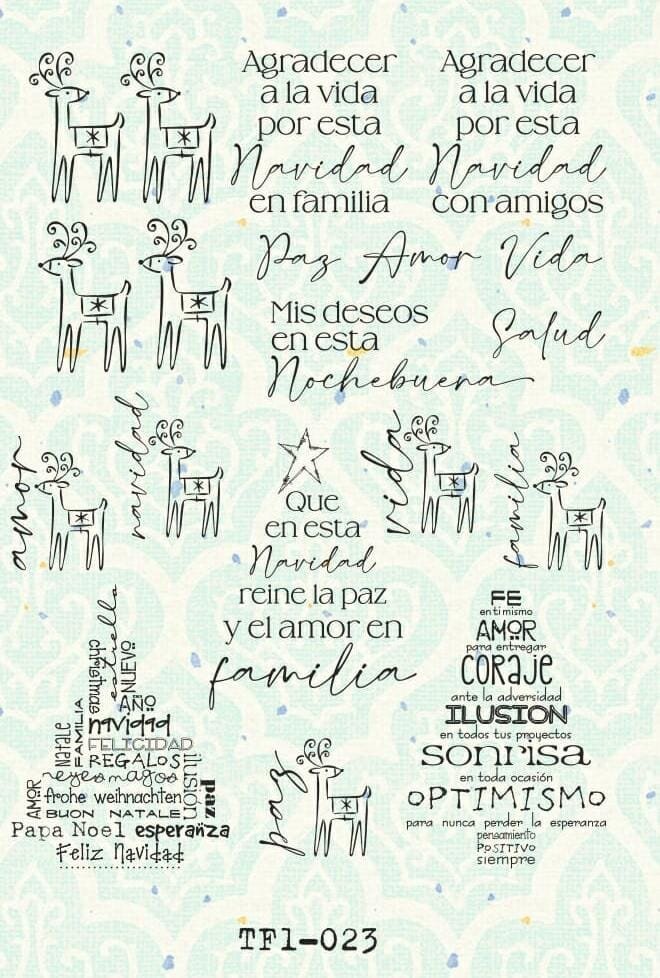 Agradecer
a la vida
por esta
Navidad
en familia
Agradecer
a la vida
por esta
Navidad
con amigos
Paz Amor Vida
Mis deseos
en esta
Nochebuena
Salud
amor
navidad
vida
familia
Que
en esta
Navidad
reine la paz
y el amor en
familia
estrella
christmas
NUEVO
AÑO
FAMILIA
Natale
navidad
FELICIDAD
REGALOS
reyesmagos
ilusión
paz
AMOR
frohe weihnachten
BUON NATALE
Papa Noel esperanza
Feliz Navidad
paz
FE
en ti mismo
AMOR
para entregar
CORAJE
ante la adversidad
ILUSION
en todos tus proyectos
sonrisa
en toda ocasión
OPTIMISMO
para nunca perder la esperanza
pensamiento
POSITIVO
siempre
TF1-023